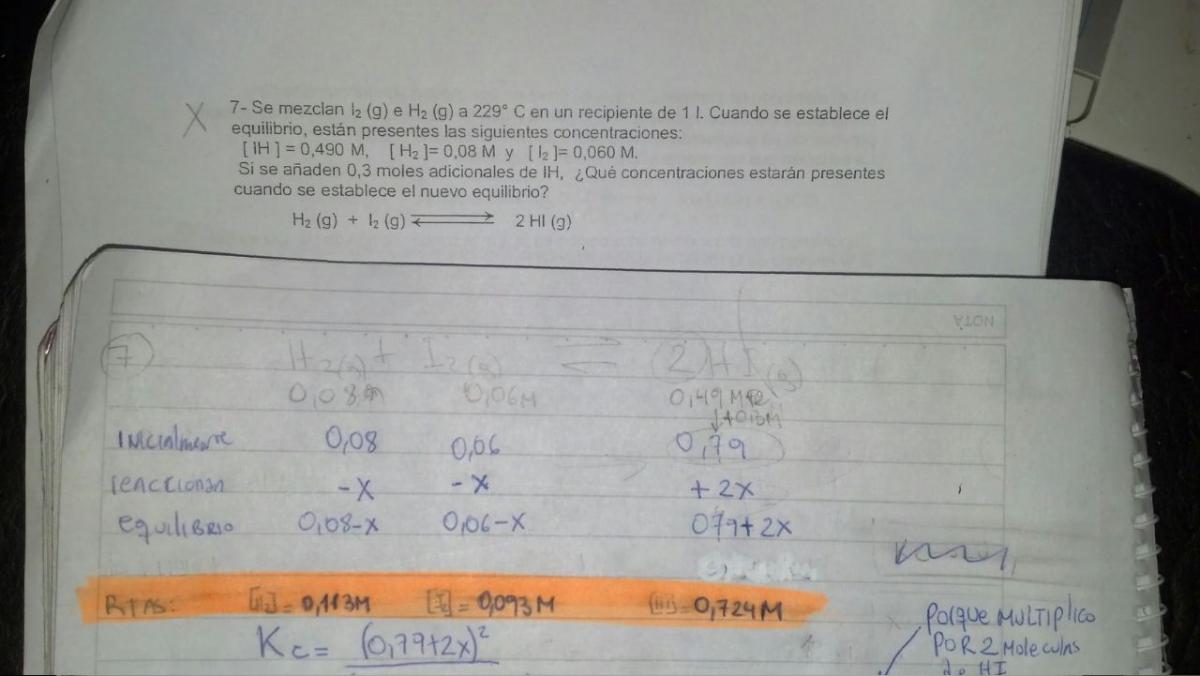 7- Se mezclan I₂ (g) e H₂ (g) a 229° C en un recipiente de 1 l. Cuando se establece el
equilibrio, están presentes las siguientes concentraciones:
[ IH ] = 0,490 M, [ H₂ ]= 0,08 M y [ I₂ ]= 0,060 M.
Si se añaden 0,3 moles adicionales de IH, ¿Qué concentraciones estarán presentes
cuando se establece el nuevo equilibrio?
H₂ (g) + I₂ (g) ⇌ 2 HI (g)
NOTA
7 H₂(g) + I₂(g) ⇌ 2HI(g)
0,08M 0,06M 0,49M
↓+0,3M
INICIALMENTE 0,08 0,06 0,79
reaccionan -X -X +2X
equilibrio 0,08-X 0,06-X 079+2X
RTAS: [H₂]= 0,113M [I₂]= 0,093M [HI]= 0,724M
Kc= (0,79+2x)²
porque MULTIPLICO
POR 2 Moleculas
de HI